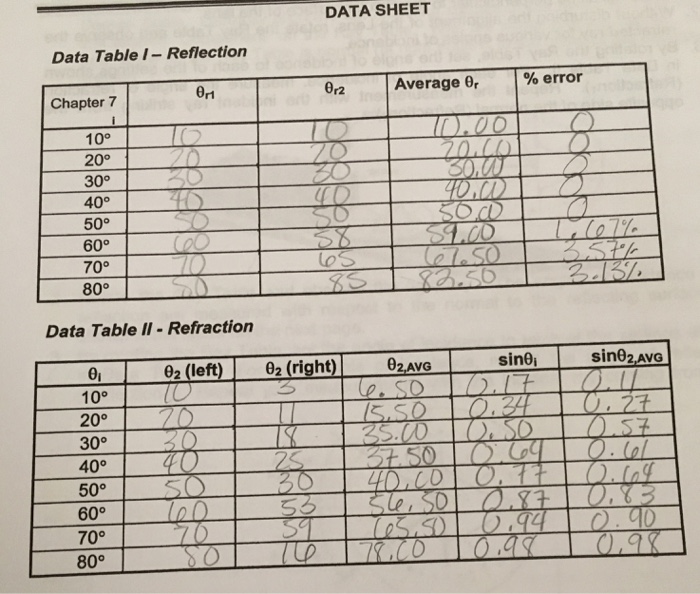 DATA SHEET
Data Table I – Reflection
Chapter 7 θr1 θr2 Average θr % error
i
10° 10 10 10.00 0
20° 20 20 20.00 0
30° 30 30 30.00 0
40° 40 40 40.00 0
50° 50 50 50.00 0
60° 60 58 59.00 1.67%
70° 70 65 67.50 3.57%
80° 80 85 82.50 3.13%
Data Table II - Refraction
θi θ2 (left) θ2 (right) θ2,AVG sinθi sinθ2,AVG
10° 10 3 6.50 0.17 0.11
20° 20 11 15.50 0.34 0.27
30° 30 18 35.00 0.50 0.57
40° 40 25 37.50 0.64 0.61
50° 50 30 40.00 0.77 0.64
60° 60 53 56.50 0.87 0.83
70° 70 59 65.50 0.94 0.90
80° 80 16 78.00 0.98 0.98